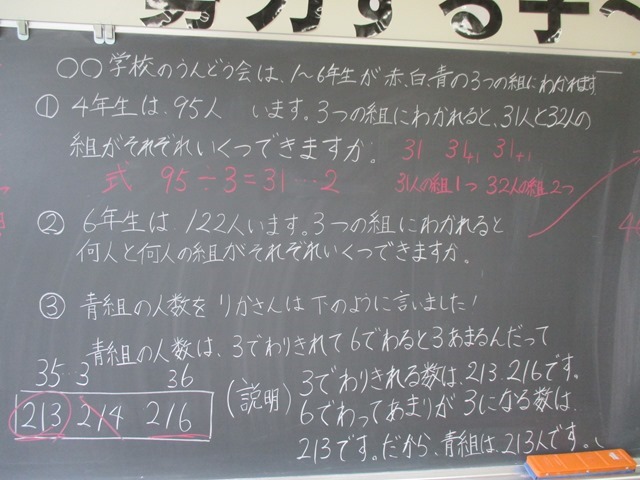 努力する子へ
○○学校のうんどう会は、1〜6年生が赤、白、青の3つの組にわかれます。
① 4年生は、95人 います。3つの組にわかれると、31人と32人の
組がそれぞれいくつできますか。 31 31+1 31+1
式 95÷3=31…2 31人の組1つ 32人の組2つ
② 6年生は 122人います。3つの組にわかれると
何人と何人の組がそれぞれいくつできますか。
③ 青組の人数を りかさんは 下のように言いました!
青組の人数は、3でわりきれて6でわると3あまるんだって
35…3 36
213 214 216
(説明) 3でわりきれる数は、213、216です。
6でわってあまりが 3になる数は、
213です。だから、青組は、213人です。